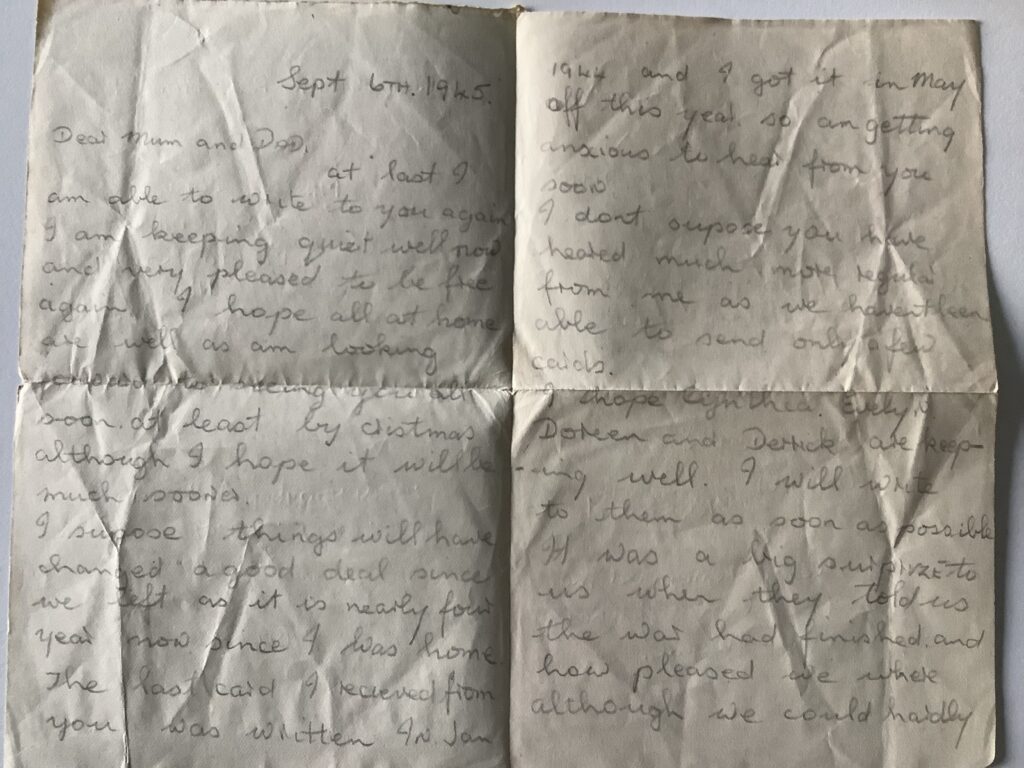 Sept 6TH. 1945.
Dear Mum and DAD,
at last I
am able to write to you again
I am keeping quiet well now
and very pleased to be free
again, I hope all at home
are well as am looking
seeing you all
soon. at least by cristmas
although I hope it will be
much sooner.
I supose things will have
changed a good deal since
we left as it is nearly four
year now since I was home.
The last card I recieved from
you was written IN. Jan
1944 and I got it in May
off this year. so am getting
anxious to hear from you
soon
I dont supose you have
heared much more regular
from me as we havent been
able to send only a few
cards.
I hope Cynthea.
Doreen and Derrick are keep-
-ing well. I will write
to them as soon as possible
It was a big surpirze to
us when they told us
the war had finished. and
how pleased we where
although we could hardly